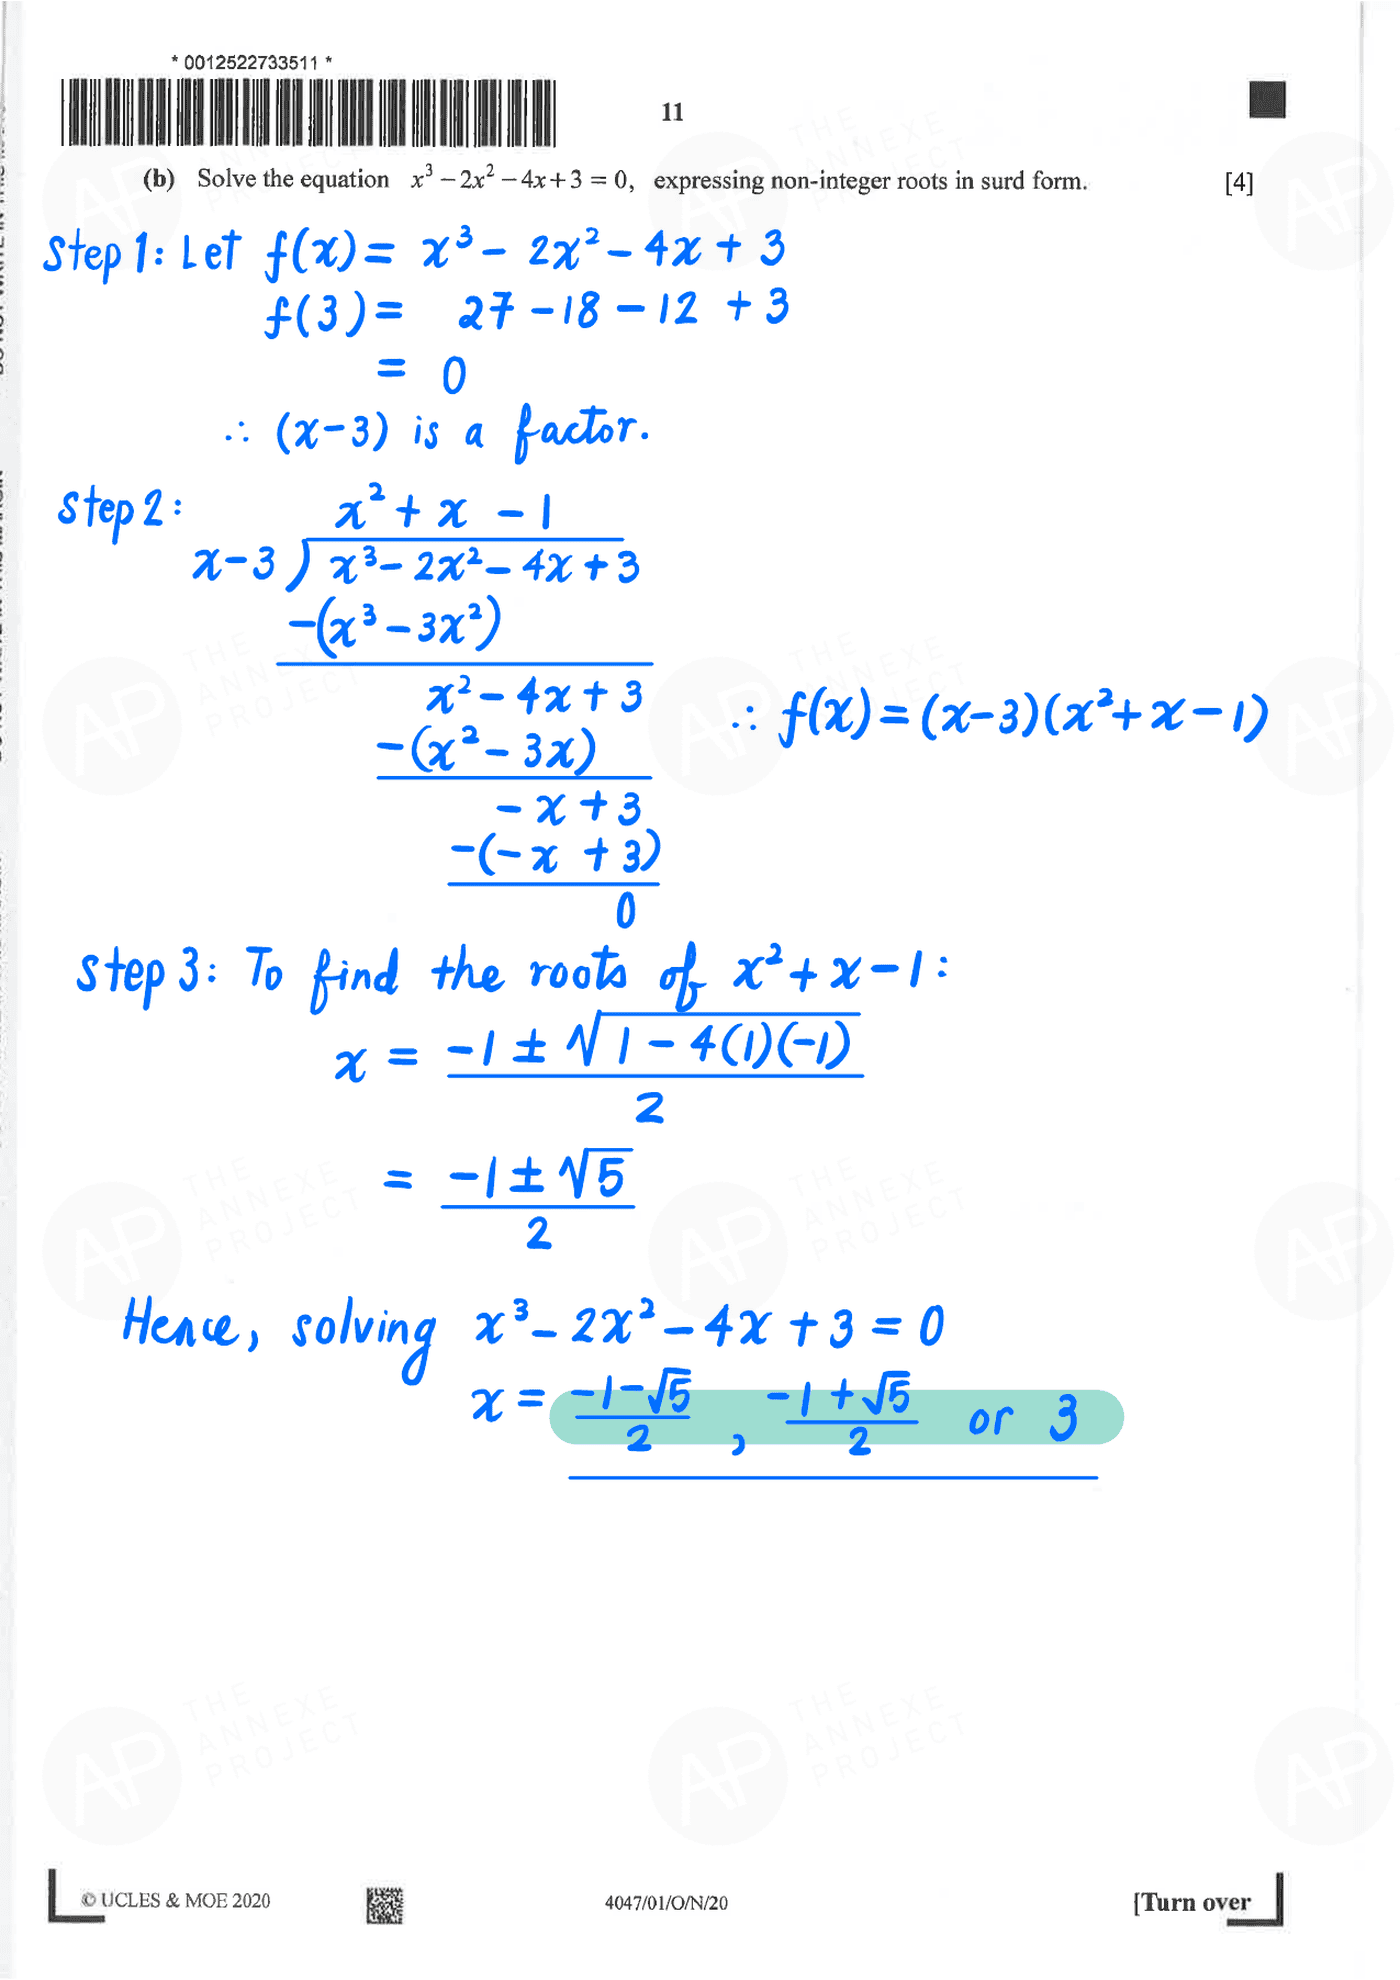 * 0012522733511 *
11
(b) Solve the equation x³ − 2x² − 4x + 3 = 0, expressing non-integer roots in surd form. [4]
Step 1: Let f(x) = x³ − 2x² − 4x + 3
f(3) = 27 − 18 − 12 + 3
= 0
∴ (x−3) is a factor.
Step 2: x² + x − 1
x−3 ) x³ − 2x² − 4x + 3
−(x³ − 3x²)
x² − 4x + 3
∴ f(x) = (x−3)(x² + x − 1)
−(x² − 3x)
−x + 3
−(−x + 3)
0
Step 3: To find the roots of x² + x − 1:
x = (−1 ± √(1 − 4(1)(−1))) / 2
= (−1 ± √5) / 2
Hence, solving x³ − 2x² − 4x + 3 = 0
x = (−1−√5)/2 , (−1+√5)/2 or 3
© UCLES & MOE 2020
4047/01/O/N/20
[Turn over
AP THE ANNEXE PROJECT